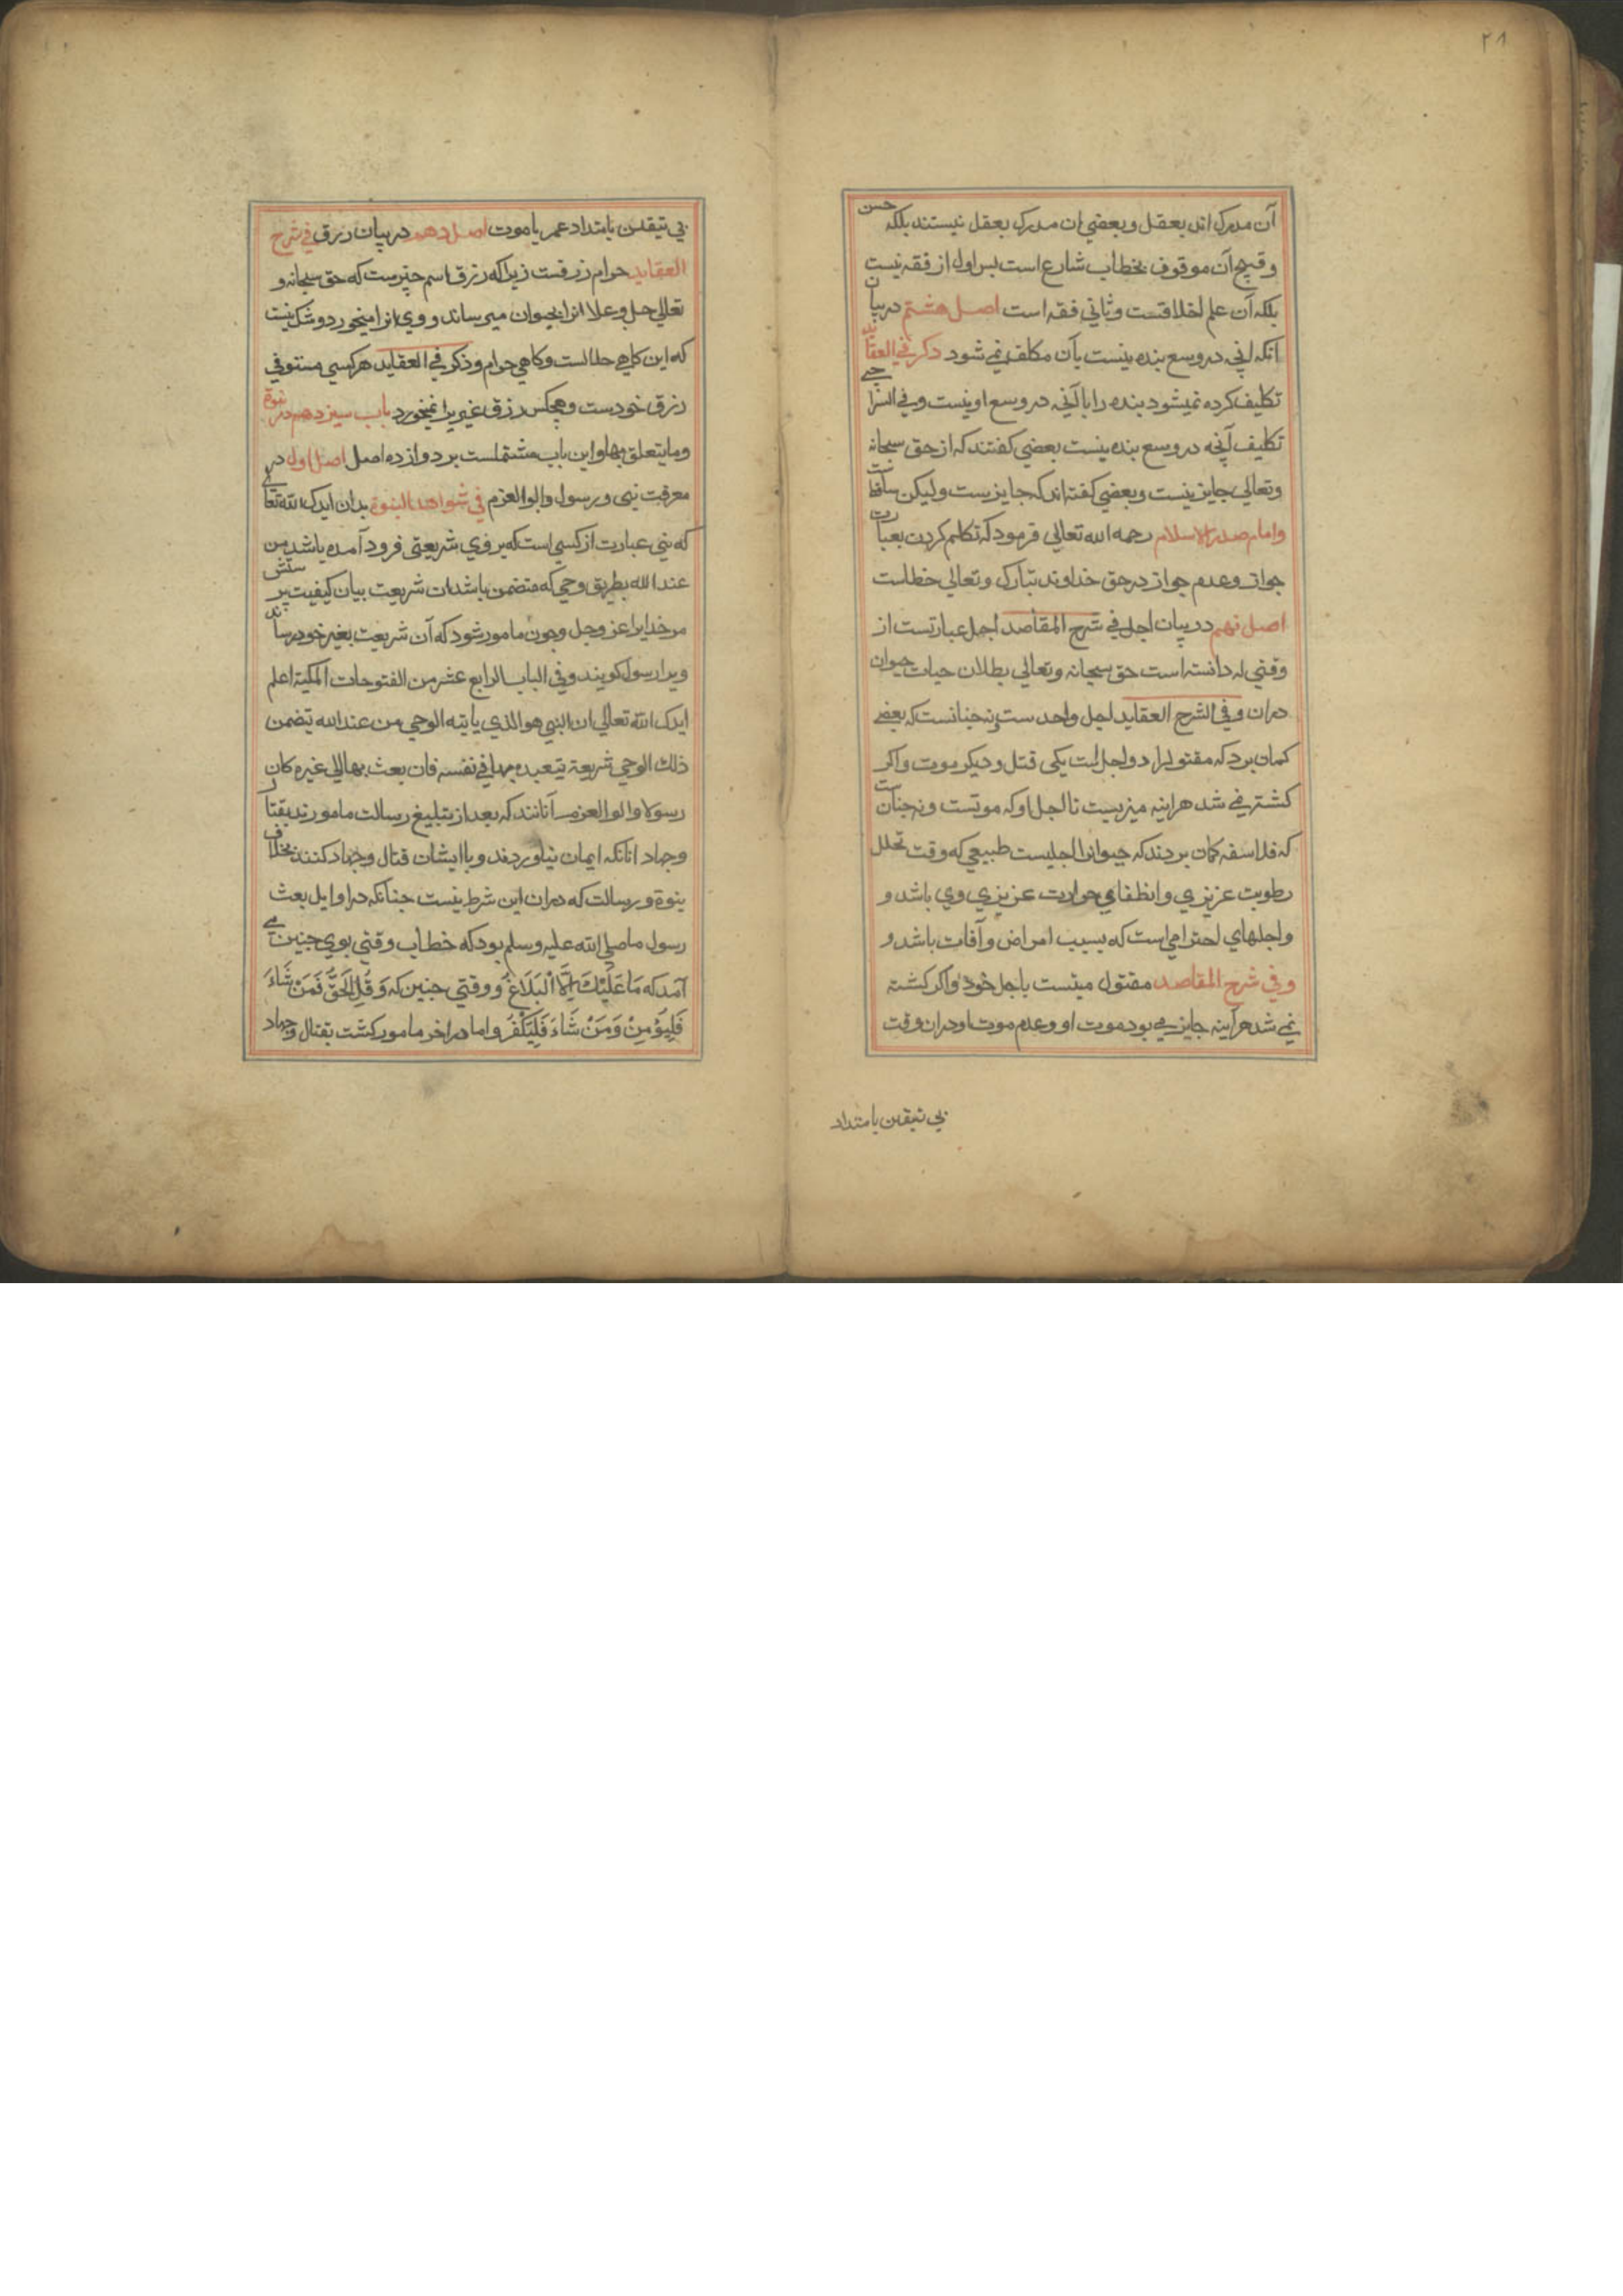 ۲۸
آن مدرک اند بعقل و بعضی ان مدرک بعقل نیستند بلکه حسن
و قبح آن موقوف بخطاب شارع است بس اول از فقه نیست
بلکه آن علم اخلاقست و ثانی فقه است اصل هشتم در بیان
آنکه انچه در وسع بنده نیست بآن مکلف نمی شود ذکر فی العقاید
تکلیف کرده نمیشود بنده را با آنچه در وسع او نیست و فی
تکلیف آنچه در وسع بنده نیست بعضی کفتند که از حق سبحانه
وتعالی جایز نیست و بعضی کفته اند که جایزست ولیکن
وامام صدر الاسلام رحمه الله تعالی فرمود که تکلم کردن بعبارت
جواز و عدم جواز در حق خداوند تبارک وتعالی خطاست
اصل نهم در بیان اجل فی شرح المقاصد اجل عبارتست از
وقتی که دانسته است حق سبحانه وتعالی بطلان حیات حیوان
دران و فی الشرح العقاید اجل واحد ست نه جنانست که بعضی
کمان برد که مقتول را دو اجل است یکی قتل و دیکر موت و اکر
کشته نمی شد هراینه میزیست تا اجل او که موتست و نه جنانست
که فلاسفه کمان بردند که حیوانرا اجلیست طبیعی که وقت تحلل
رطوبت عزیزی و انطفای حرارت عزیزی وی باشد و
و اجلهای اخترامی است که بسبب امراض و آفات باشد و
و فی شرح المقاصد مقتول میتست باجل خود و اکر کشته
نمی شد هرآینه جایز می بود موت او و عدم موت او دران وقت
بی تیقن بامتداد
بی تیقن بامتداد عمر یا موت اصل دهم در بیان رزق فی شرح
العقاید حرام رزقست زیرا که رزق اسم چیزست که حق سبحانه و
تعالی جل وعلا انرا بحیوان میرساند و وی انرا میخورد و شک نیست
که این کاهی حلالست و کاهی حرام و ذکر فی العقاید هر کسی مستوفی
رزق خودست و هیچکس رزق غیر یرا نمیخورد باب سیزدهم در نبوة
وما یتعلق بها و این باب مشتملست بر دوازده اصل اصل اول در
معرفت نبی و رسول و الو العزم فی شواهد النبوة بدان ایدک الله تعالی
که نبی عبارت از کسی است که بر وی شریعتی فرود آمده باشد من
عند الله بطریق وحی که متضمن باشد ان شریعت بیان کیفیت پرستش
مر خدایرا عز وجل و چون مامور شود که آن شریعت بغیر خود رساند
ویرا رسول کویند و فی الباب الرابع عشر من الفتوحات المکیة اعلم
ایدک الله تعالی ان النبی هو الذی یاتیه الوحی من عند الله تیضمن
ذلك الوحی شریعة یتعبده بها فی نفسه فان بعث بها الی غیره کان
رسولا و الو العزم آنانند که بعد از تبلیغ رسالت مامورند بقتال
وجهاد انانکه ایمان نیاوردند و باایشان قتال و جهاد کنند بخلاف
نبوة و رسالت که دران این شرط نیست جنانکه در اوایل بعث
رسول ما صلی الله علیه وسلم بود که خطاب وقتی بوی جنین می
آمد که مَا عَلَيْكَ اِلَّا الْبَلَاغُ و وقتی جنین که وَ قُلِ الْحَقُّ فَمَنْ شَاءَ
فَلْيُؤْمِنْ وَ مَنْ شَاءَ فَلْيَكْفُرْ و اما در اخر مامور کشت بقتال و جهاد